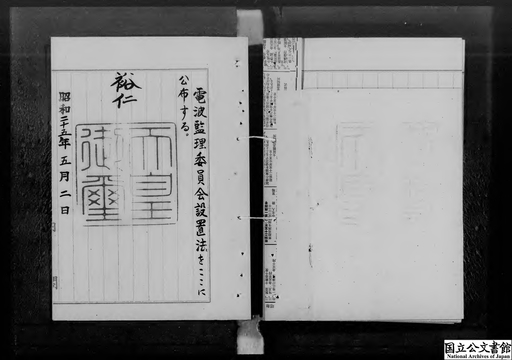 電波監理委員会設置法をここに
公布する。
裕仁
天皇
御璽
昭和二十五年五月二日
国立公文書館
National Archives of Japan